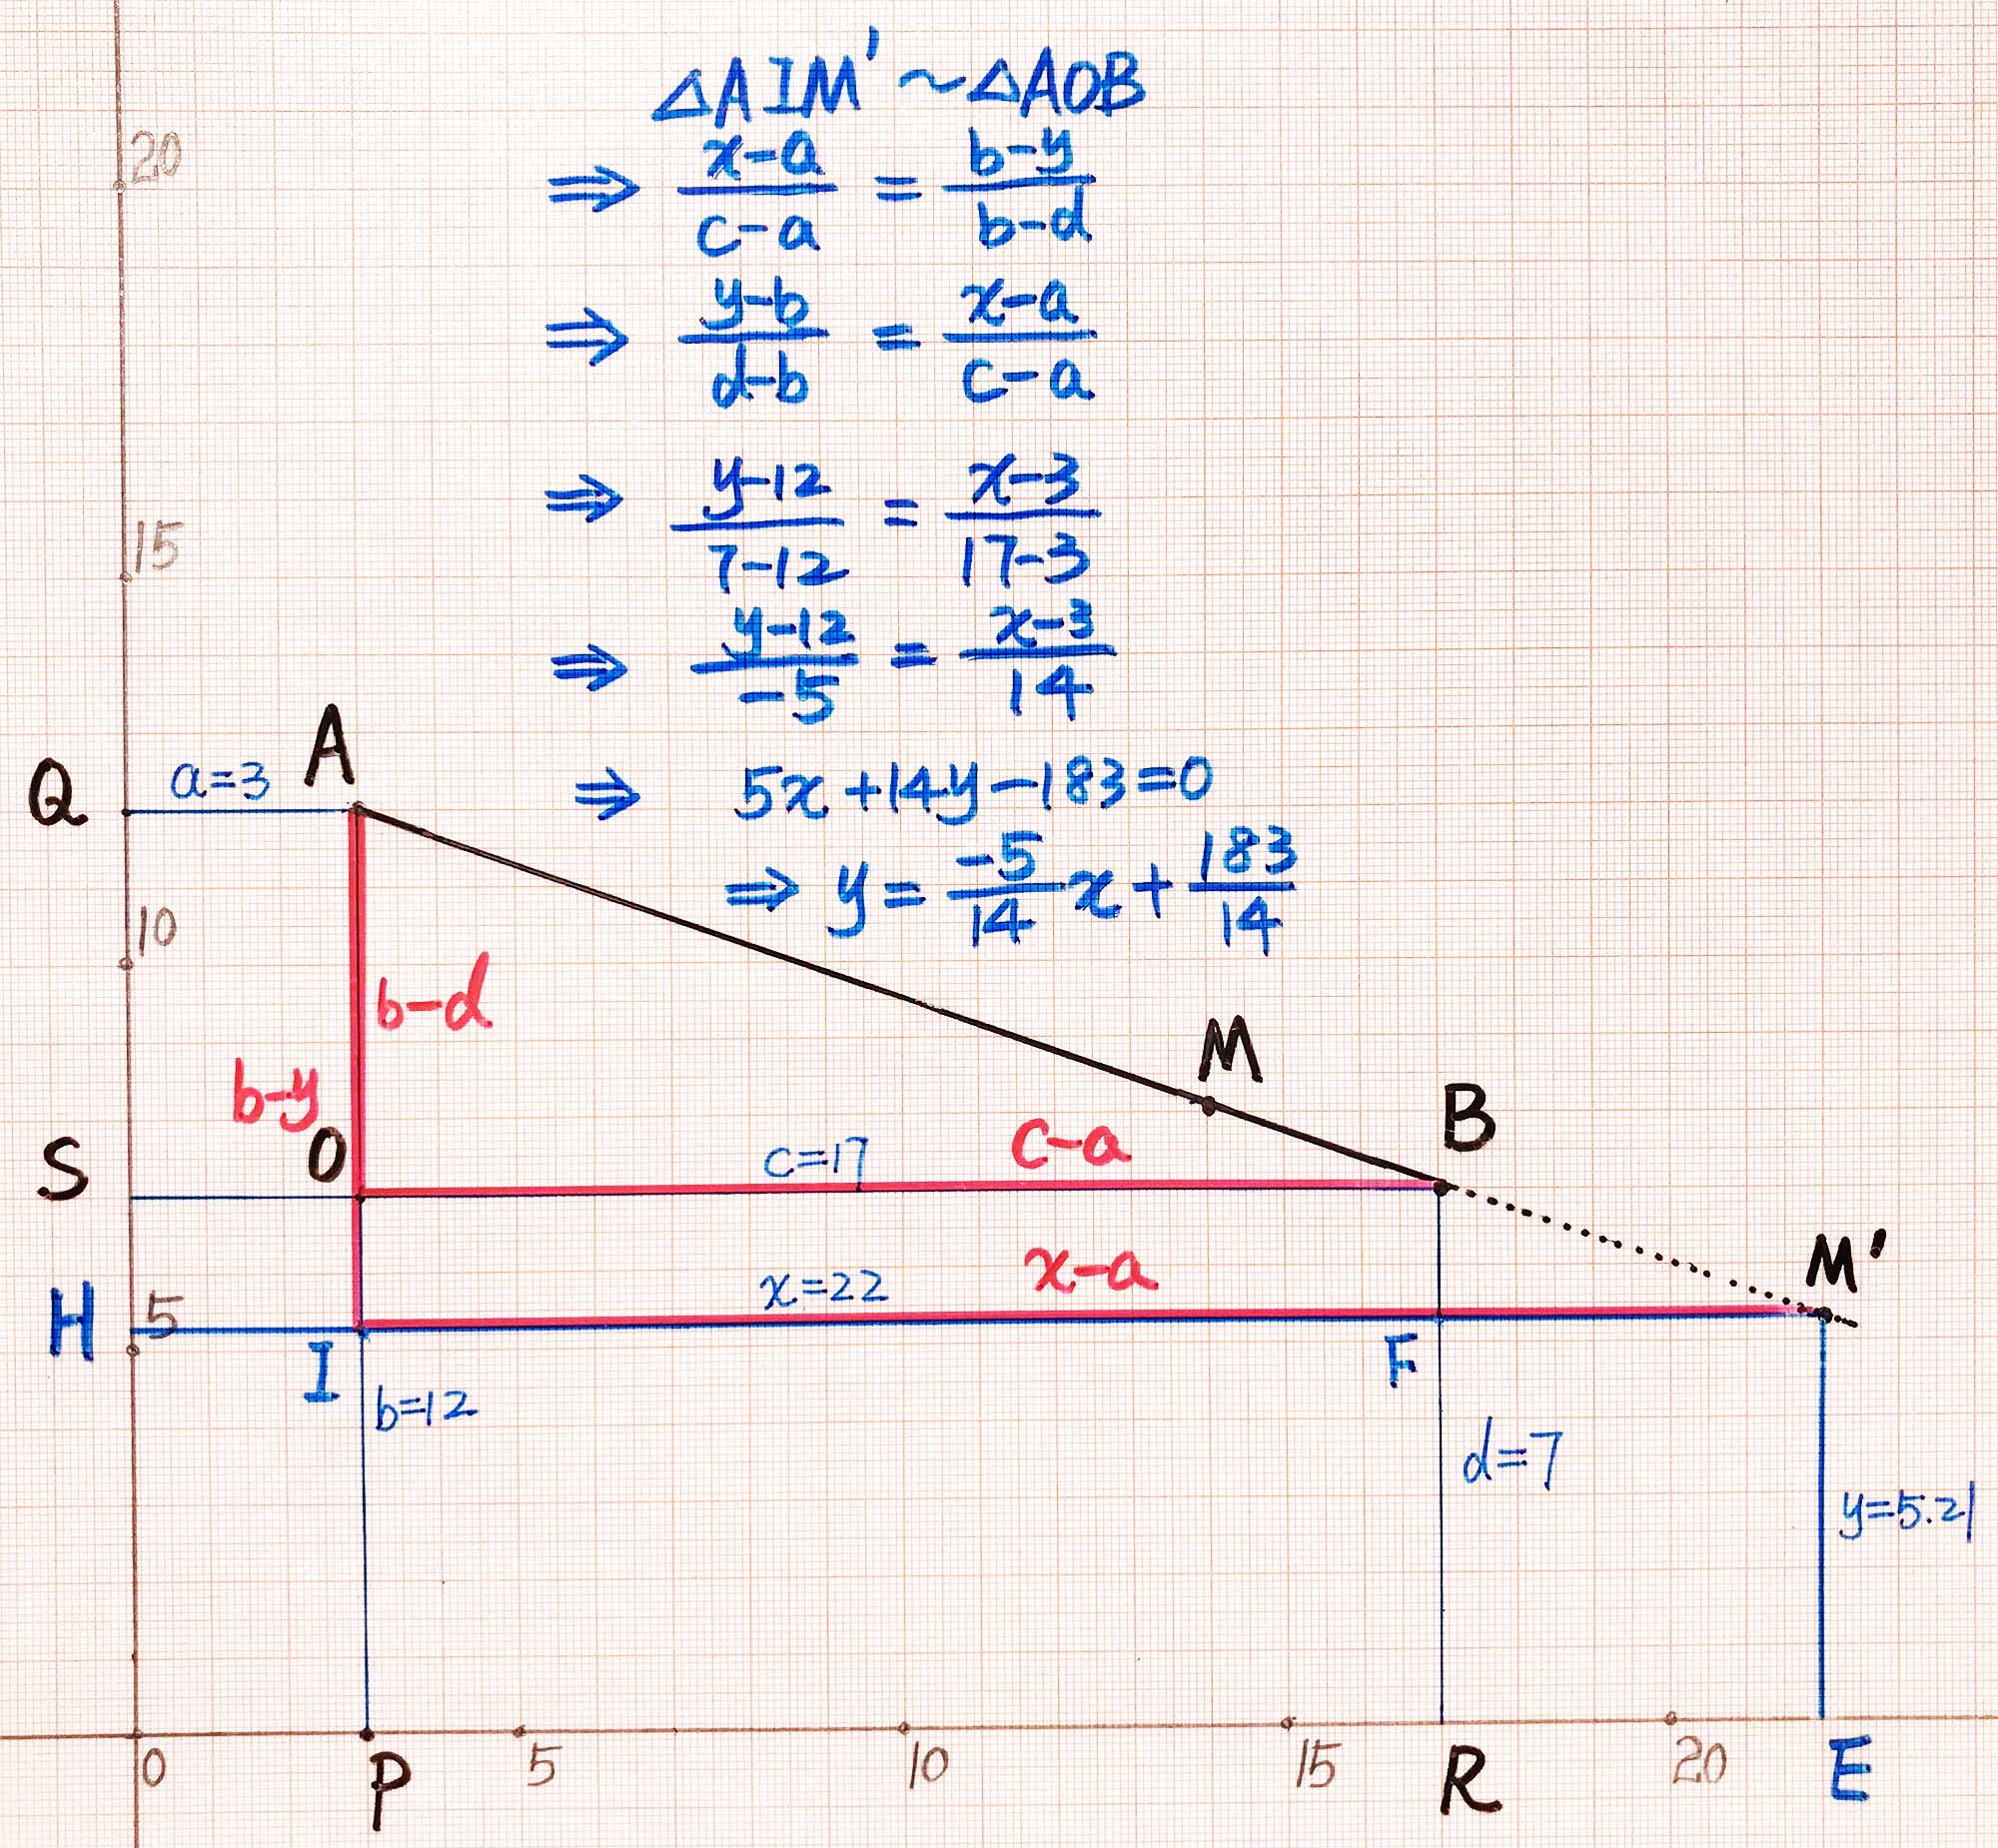 △AIM' ~ △AOB
⇒ (x-a)/(c-a) = (b-y)/(b-d)
⇒ (y-b)/(d-b) = (x-a)/(c-a)
⇒ (y-12)/(7-12) = (x-3)/(17-3)
⇒ (y-12)/(-5) = (x-3)/14
⇒ 5x+14y-183=0
⇒ y = (-5/14)x + 183/14
20
15
Q a=3 A
10
b-d
b-y
M
B
S O c=17 c-a
H 5 x=22 x-a M'
I F
b=12
d=7
y=5.21
0 P 5 10 15 R 20 E